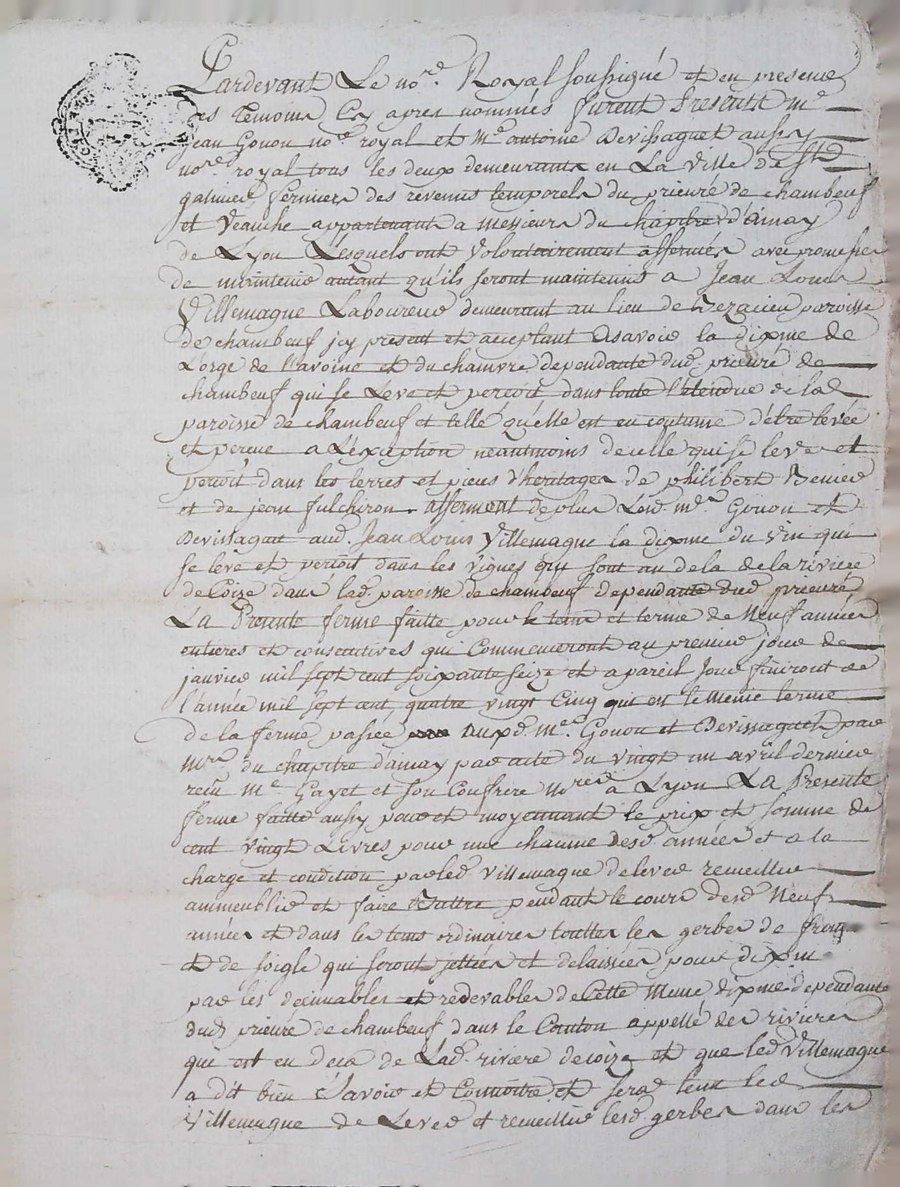 Pardevant Le nore. Royal soussigné et en presence
des temoins Cy apres nommés furent Presents me
jean Gonon nore. royal et me antoine Devissaguet aussy
nore. royal tous les deux demeurants en La ville de st
galmier fermiers des revenus temporels du prieuré de chambeuf
et veauche appartenant a messieurs du chapitre d'ainay
de Lyon Lesquels ont volontairement affermés avec promesse
de maintenir autant qu'ils seront maintenus a Jean Louis
Villemagne Laboureur demeurant au lieu de paroisse
de chambeuf jcy present et acceptant asavoir la dixme de
L'orge de l'avoine et du chamvre dependante dud. prieuré de
chambeuf qui se Leve et percoit dans toute l'étendue de lad
paroisse de chambeuf et telle qu'elle est en coutume d'être levée
et percue a L'exception néantmoins de celle qui se leve et
percoit dans les terres et pieces d'heritages de philibert
et de jean fulchiron. afferment de plus Lesd. mes. Gonon et
Devissaguet aud. Jean Louis Villemagne la dixme du vin qui
se leve et percoit dans les vignes qui sont au dela de la riviere
de Coize dans lad. paroisse de chambeuf dependante dud prieuré,
La Presente ferme faitte pour le tems et terme de Neuf années
entieres et consecutives qui Commenceront au premier jour de
janvier mil sept cent soixante seize et a pareil Jour finiront de
l'année mil sept cent quatre vingt Cinq qui est le meme terme
de la ferme passée auxd. mes. Gonon et Devissaguet par
mrs. du chapitre d'ainay par acte du vingt un avril dernier
reçu me Gayet et son Confrere nores a Lyon La Presente
ferme faitte aussy pour et moyennant le prix et somme de
cent vingt Livres pour une chacune desd. années et a la
charge et condition par led villemagne de lever recueillir
ammeublir et faire Battre pendant le cours desd. Neuf
années et dans les tems ordinaires touttes les gerbes de
et de soigle qui seront jettées et delaissées pour dixme
par les decimables et redevables de Cette Meme dixme dependante
dud. prieuré de chambeuf dans le Canton appellé des rivieres
qui est en deca de Lad. riviere de coize et que led Villemagne
a dit bien sçavoir et Connoître et sera tenu led
Villemagne de Lever et recueillir lesd. gerbes dans les